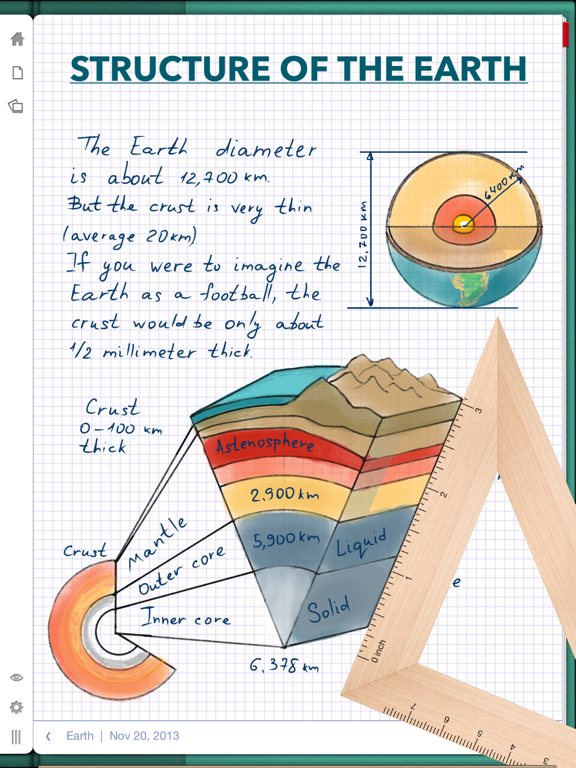 STRUCTURE OF THE EARTH
The Earth diameter
is about 12,700 km.
But the crust is very thin
(average 20km)
If you were to imagine the
Earth as a football, the
crust would be only about
1/2 millimeter thick.
12,700 km
6400 km
Crust
0-100 km
thick
Astenosphere
2,900 km
5,900 km
Liquid
Solid
6,378 km
Crust
Mantle
Outer core
Inner core
e
3
2
1
0 inch
7
6
5
4
3
Earth | Nov 20, 2013